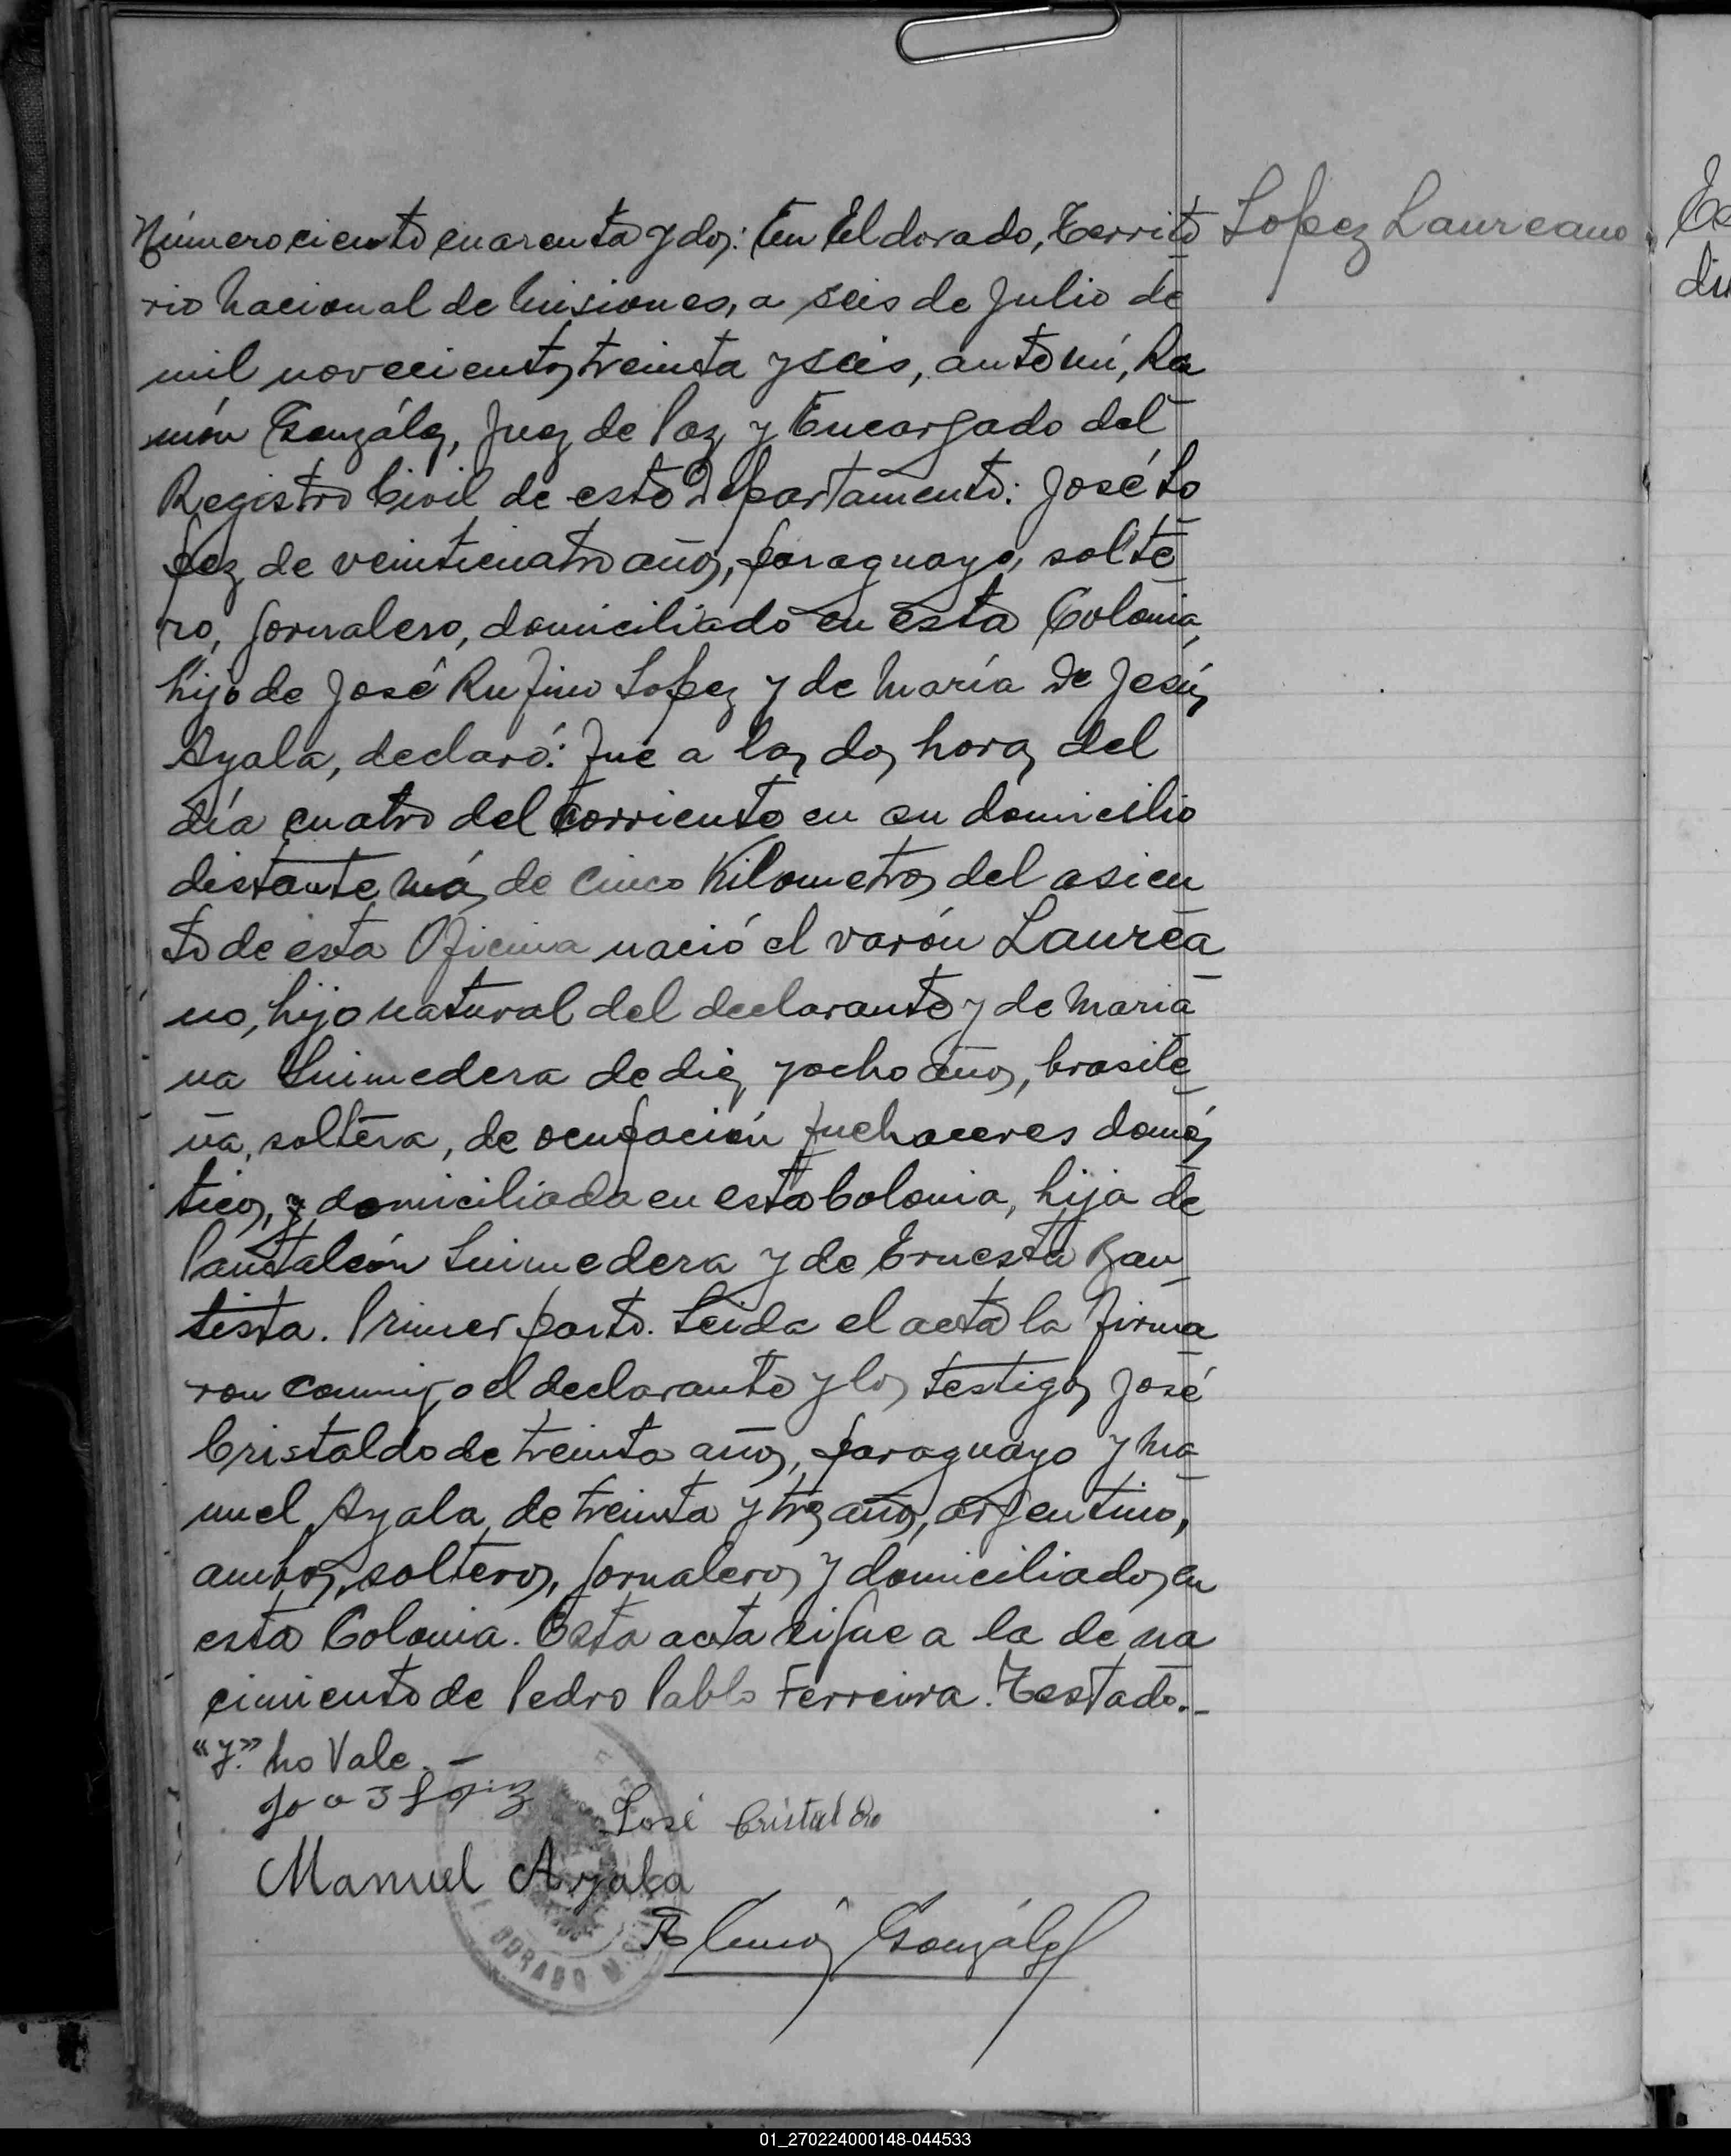 Número ciento cuarenta y dos: En Eldorado, Territo
Lopez Laureano
rio Nacional de Misiones, a seis de Julio de
mil novecientos treinta y seis, ante mí, Ra
món González, Juez de Paz y Encargado del
Registro Civil de este Departamento: José Lo
pez de veinticuatro años, paraguayo, solte
ro, jornalero, domiciliado en esta Colonia,
hijo de José Rufino Lopez y de María de Jesús
Ayala, declaró: Que a las dos horas del
día cuatro del corriente en su domicilio
distante más de cinco Kilometros del asien
to de esta Oficina nació el varón Laurea
no, hijo natural del declarante y de Maria
na de diez y ocho años, brasile
ña, soltera, de ocupación quehaceres domés
ticos, y domiciliada en esta Colonia, hija de
Pantaleón y de Ernesta Bau
tista. Primer parto. Leida el acta la firma
ron conmigo el declarante y los testigos José
Cristaldo de treinta años, paraguayo y Ma
nuel Ayala de treinta y tres años, argentino,
ambos solteros, jornaleros y domiciliados en
esta Colonia. Esta acta sigue a la de na
cimiento de Pedro Pablo Ferreira. Testado.-
"y." No Vale. -
José Cristaldo
Manuel Ayala
Ramón González
DORADO
01_270224000148-044533